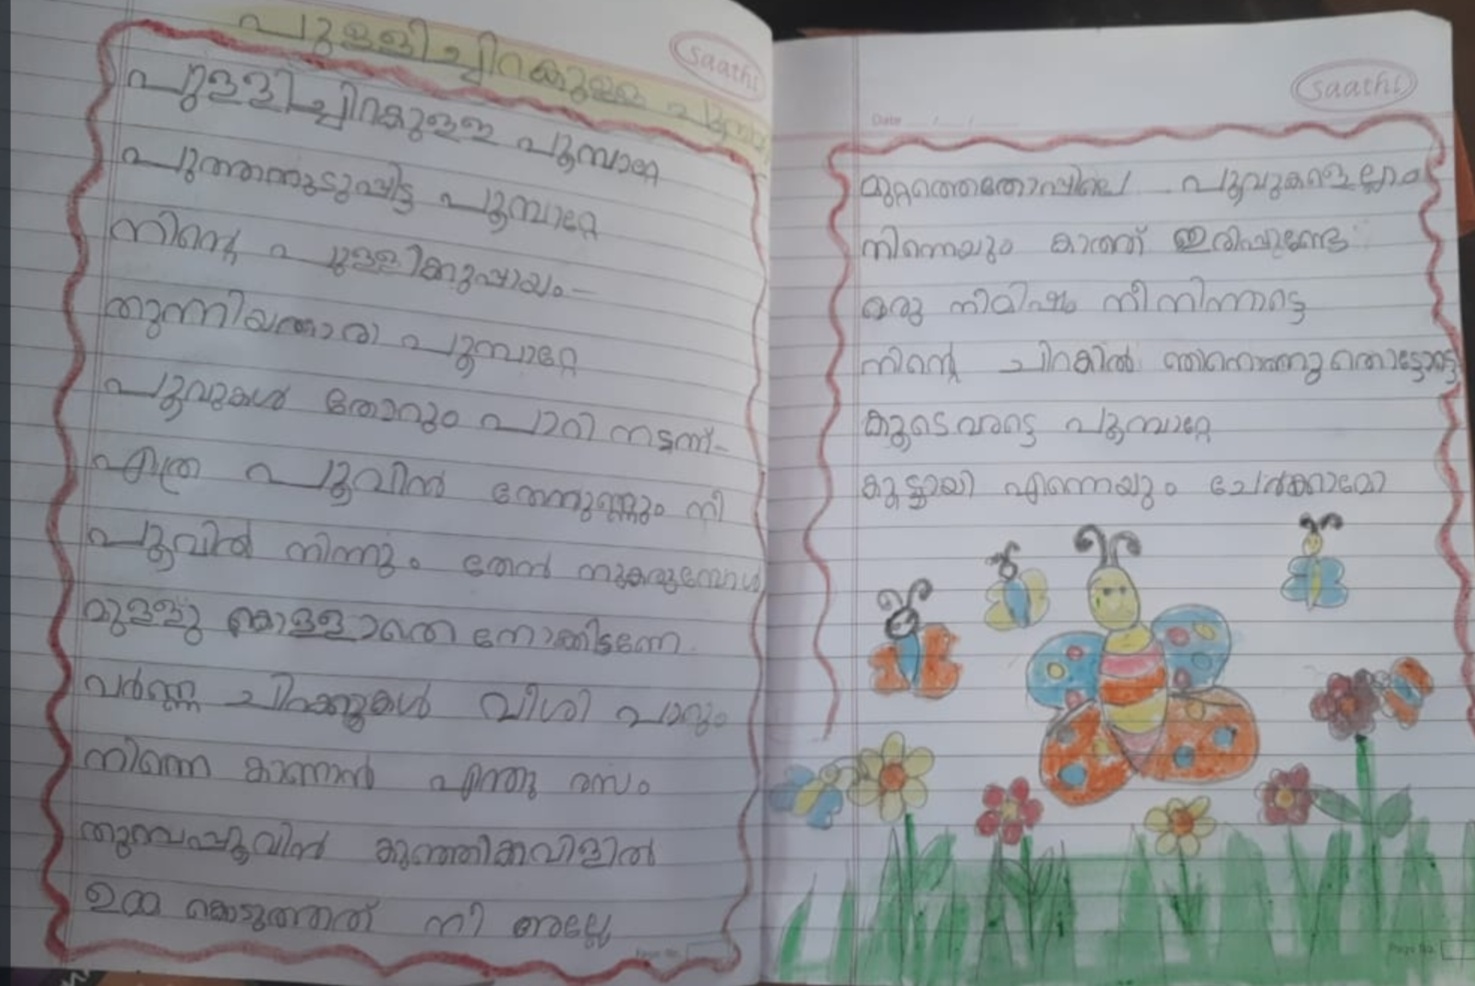 പുള്ളിച്ചിറകുള്ള
saathi
പുള്ളിച്ചിറകുള്ള പൂമ്പാറ്റേ
പുത്തനുടുപ്പിട്ട പൂമ്പാറ്റേ
നിന്റെ പുള്ളിക്കുപ്പായം-
തുന്നിയതാരാ പൂമ്പാറ്റേ
പൂവുകൾ തോറും പാറി നടന്ന്-
എത്ര പൂവിൻ തേനുണ്ണും നീ
പൂവിൽ നിന്നും തേൻ നുകരുമ്പോൾ
മുള്ളു കൊള്ളാതെ നോക്കിടണേ
വർണ്ണ ചിറകുകൾ വീശി പാറും
നിന്നെ കാണാൻ എന്തു രസം
തുമ്പപ്പൂവിൻ കുഞ്ഞിക്കവിളിൽ
ഉമ്മ കൊടുത്തത് നീ അല്ലേ
Page No.
saathi
Date / /
മുറ്റത്തെതോപ്പിലെ പൂവുകളെല്ലാം
നിന്നെയും കാത്ത് ഇരിപ്പുണ്ടേ
ഒരു നിമിഷം നീ നിന്നാട്ടെ
നിന്റെ ചിറകിൽ തൊട്ടോട്ടെ
കൂടെവരട്ടെ പൂമ്പാറ്റേ
കൂട്ടായി എന്നെയും ചേർക്കാമോ
Page No.